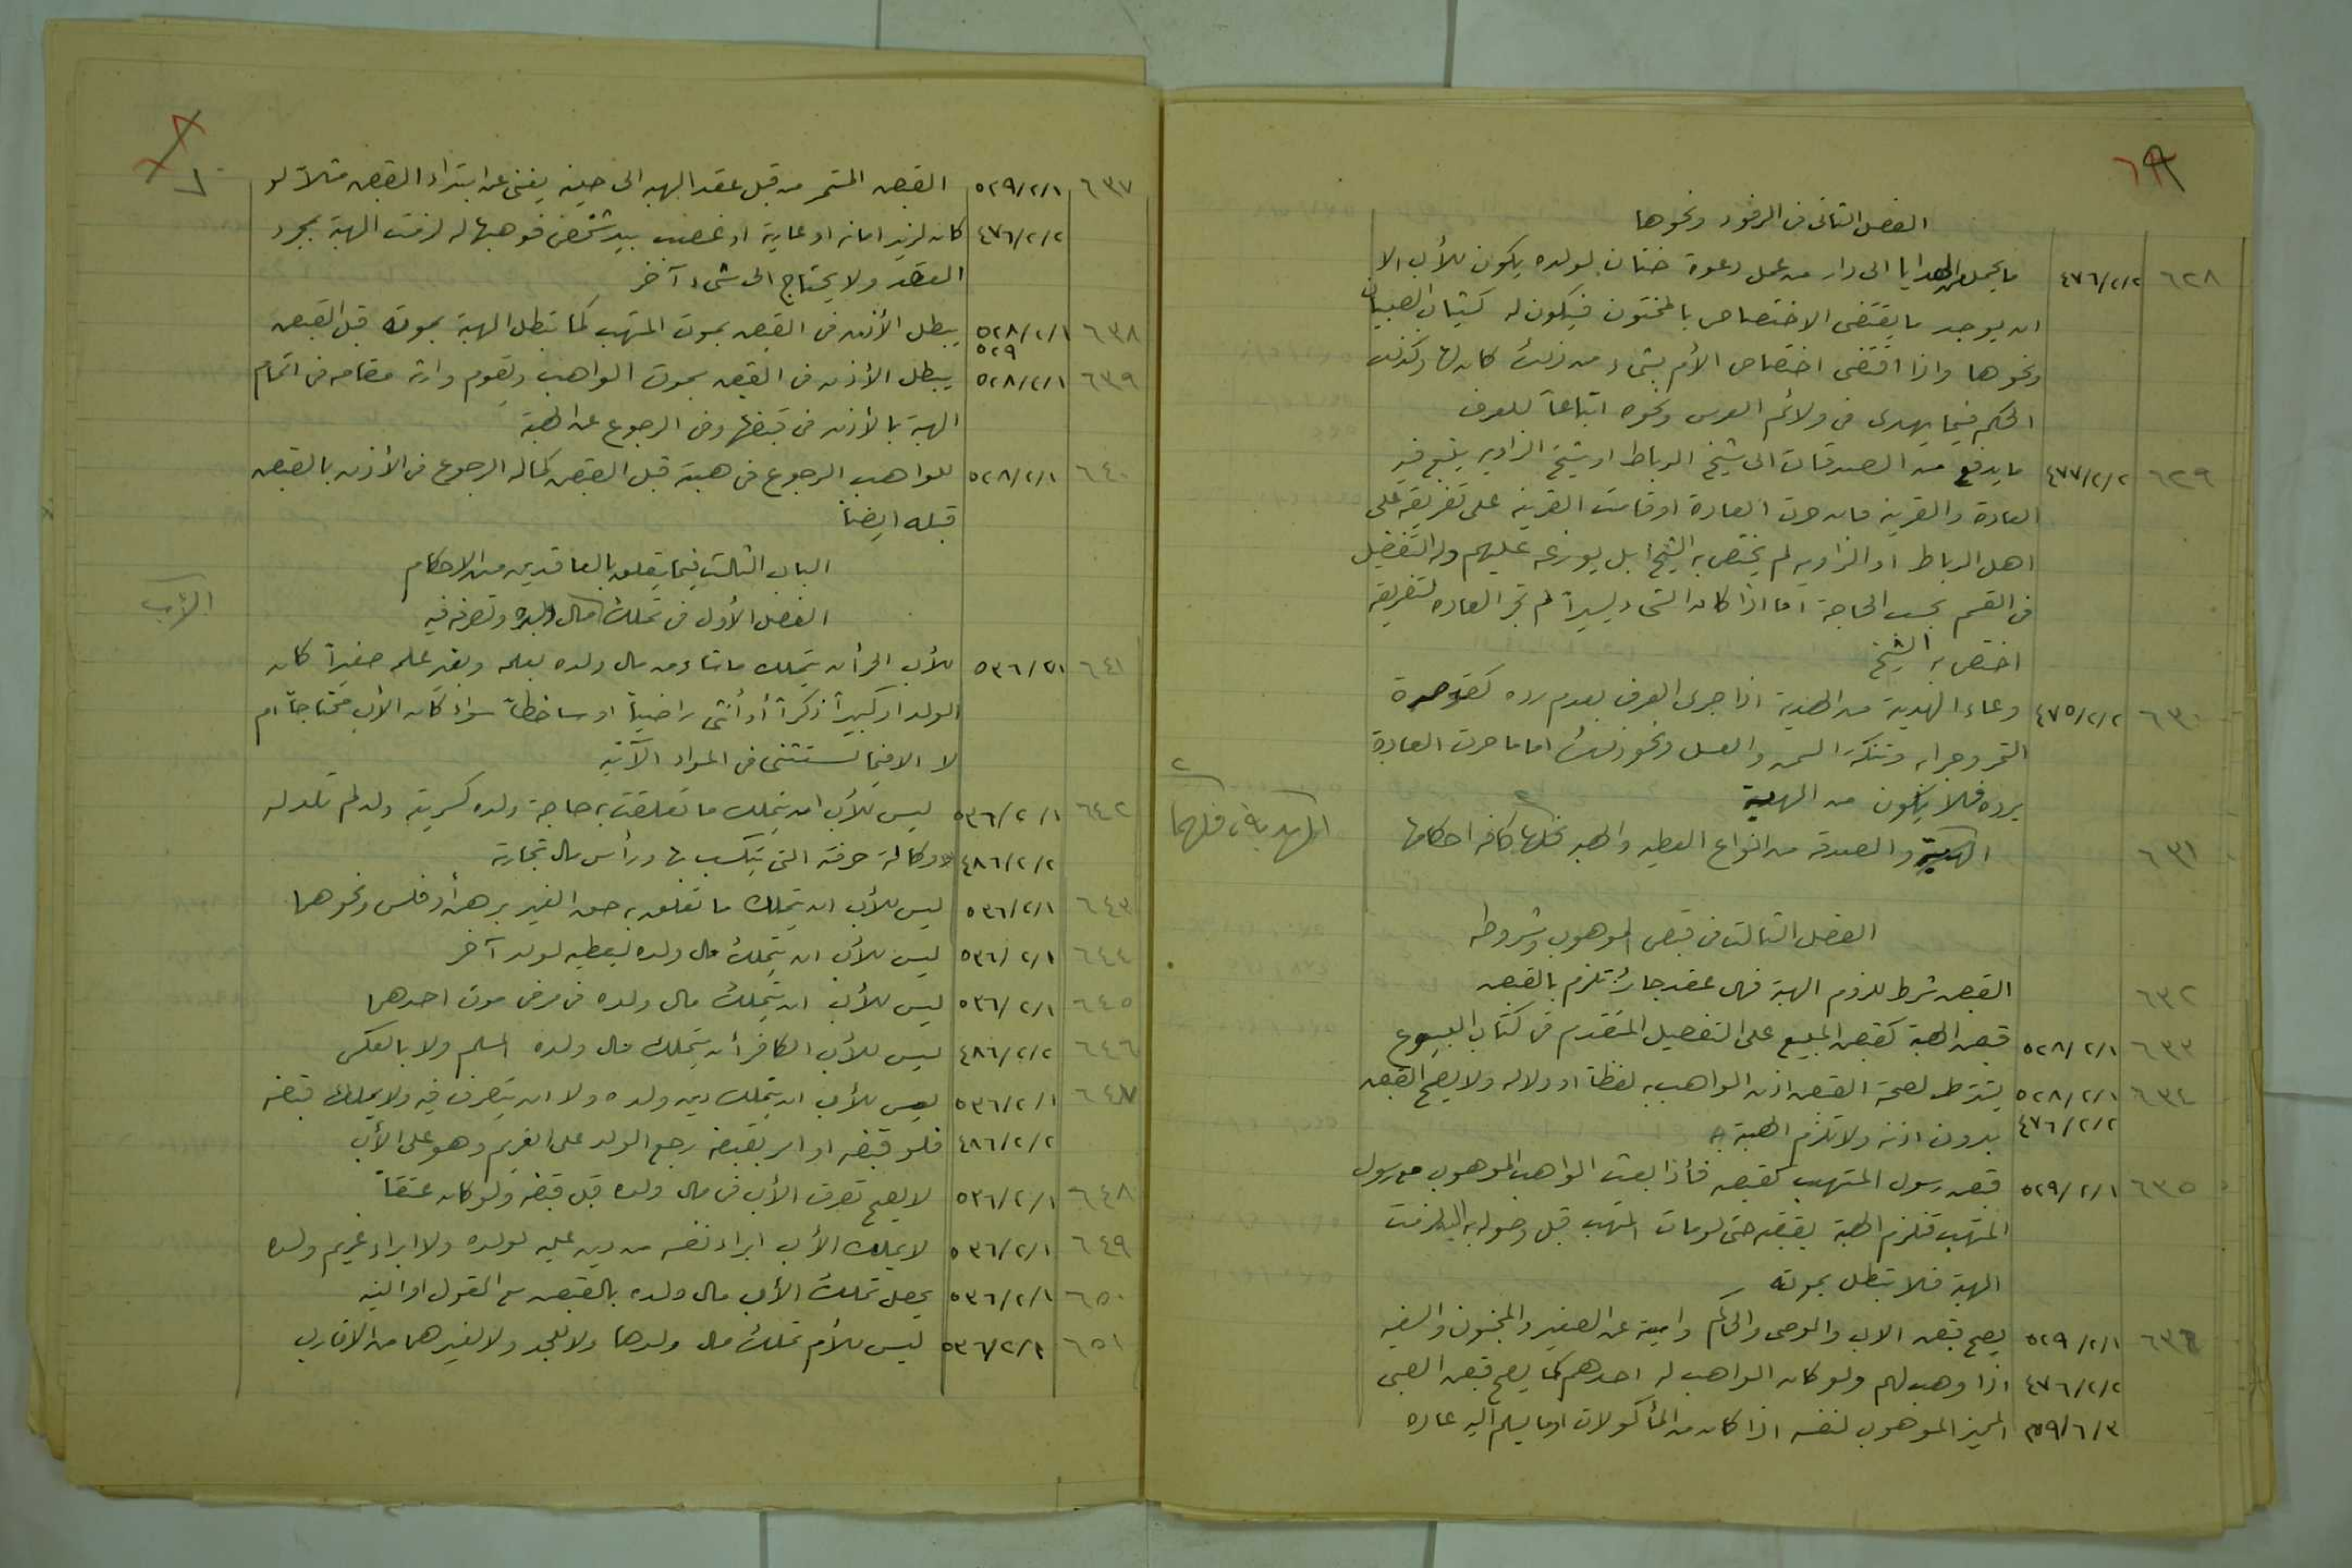 الفصل الثاني في الرفود ونحوها
٦٢٨ ٤٧٦/٢/٢ ما يحمل من الهدايا الى دار من عمل دعوة ختان لولده يكون للأب الا
ان يوجد ما يقتضي الاختصاص بالمختون فيكون له كثياب الصبيان
ونحوها واذا اقتضى اختصاص الأم بشيء من ذلك كان لها وكذلك
الحكم فيما يهدى في ولائم العرس ونحوه اتباعاً للعرف
٦٢٩ ٤٧٧/٢/٢ ما يدفع من الصدقات الى شيخ الرباط او شيخ الزاويه يتبع فيه
العادة والقرينه فان جرت العادة او قامت القرينه على تفريقه على
اهل الرباط او الزاويه لم يختص به الشيخ بل يوزعه عليهم وله التفضيل
في القسم بحسب الحاجة اما اذا كان الشيء يسيراً لم تجر العاده لتفريقه
اختص به الشيخ
٦٣٠ ٤٧٥/٢/٢ وعاء الهدية من الهدية اذا جرى العرف بعدم رده كقوصرة
التمر وجرابه وتنكة السمن والعسل ونحو ذلك اما ما جرت العادة
برده فلا يكون من الهدية
٦٣١ الهدية والصدقه من انواع العطيه والهبه فلها كافه احكامها
٢
الهدية، فلهما
الفصل الثالث في قبض الموهوب وشروطه
٦٣٢ القبض شرط للزوم الهبة فهي عقد جائز تلزم بالقبض
٦٣٣ ٥٢٨/٢/١ قبض الهبة كقبض المبيع على التفصيل المتقدم في كتاب البيوع
٦٣٤ ٥٢٨/٢/١ يشترط لصحة القبض اذن الواهب به لفظا او دلاله ولا يصح القبض
٤٧٦/٢/٢ بدون اذنه ولا تلزم الهبة به
٦٣٥ ٥٢٩/٢/١ قبض رسول المتهب كقبضه فأذا بعث الواهب الموهوب مع رسول
المتهب فتلزم الهبة بقبضه حتى لو مات المتهب قبل وصوله اليه لزمت
الهبة فلا تبطل بموته
٦٣٦ ٥٢٩/٢/١ يصح قبض الاب والوصي والحاكم وامينه عن الصغير والمجنون والسفيه
٤٧٦/٢/٢ اذا وهب لهم ولو كان الواهب له احدهم كما يصح قبض الصبي
٥٩/٦/٣ المميز الموهوب لنفسه اذا كان من المأكولات او ما يسلم اليه عاده
٦٣٧ ٥٢٩/٢/١ القبض المستمر من قبل عقد الهبه الى حينه يغني عن ابتداء القبض مثلاً لو
٤٧٦/٢/٢ كان لزيد امانه او عارية او غصب بيد شخص فوهبها له لزمت الهبة بمجرد
العقد ولا يحتاج الى شيء آخر
٦٣٨ ٥٢٨/٢/١ يبطل الأذن في القبض بموت المتهب كما تبطل الهبة بموته قبل القبض
٥٢٩
٦٣٩ ٥٢٨/٢/١ يبطل الأذن في القبض بموت الواهب ويقوم وارثه مقامه في اتمام
الهبة بالأذن في قبضها وفي الرجوع عن الهبة
٦٤٠ ٥٢٨/٢/١ للواهب الرجوع في هبته قبل القبض كما له الرجوع في الأذن بالقبض
قبله ايضاً
الباب الثالث فيما يتعلق بالعاقدين من الاحكام
الفصل الأول في تملك مال ولده وتصرفه فيه
الأب
٦٤١ ٥٣٦/٢/١ للأب الحر أن يتملك ما شاء من مال ولده بعلمه وبغير علمه صغيراً كان
الولد او كبيراً ذكراً أو أنثى راضياً او ساخطاً سواء كان الأب محتاجاً ام
لا الا فيما يستثنى في المواد الآتيه
٦٤٢ ٥٣٦/٢/١ ليس للأب ان يتملك ما تعلقت به حاجة ولده كسريته ولو لم تلد له
٤٨٦/٢/٢ وكآلة حرفته التي يتكسب بها ورأس مال تجارته
٦٤٣ ٥٣٦/٢/١ ليس للأب ان يتملك ما تعلق به حق الغير برهن أو فلس ونحوهما
٦٤٤ ٥٣٦/٢/١ ليس للأب ان يتملك مال ولده ليعطيه لولد آخر
٦٤٥ ٥٣٦/٢/١ ليس للأب ان يتملك مال ولده في مرض موت احدهما
٦٤٦ ٤٨٦/٢/٢ ليس للأب الكافر أن يتملك مال ولده المسلم ولا بالعكس
٦٤٧ ٥٣٦/٢/١ ليس للأب ان يتملك دين ولده ولا ان يتصرف فيه ولا يملك قبضه
٤٨٦/٢/٢ فلو قبضه او امر بقبضه رجع الولد على الغريم وهو على الأب
٦٤٨ ٥٣٦/٢/١ لا يصح تصرف الأب في مال ولده قبل قبضه ولو كان عتقاً
٦٤٩ ٥٣٦/٢/١ لا يملك الأب ابراء نفسه من دين عليه لولده ولا ابراء غريم ولده
٦٥٠ ٥٣٦/٢/١ يحصل تملك الأب مال ولده بالقبض مع القول او النيه
٦٥١ ٥٣٦/٢/١ ليس للأم تملك مال ولدها ولا للجد ولا لغيرهما من الاقارب